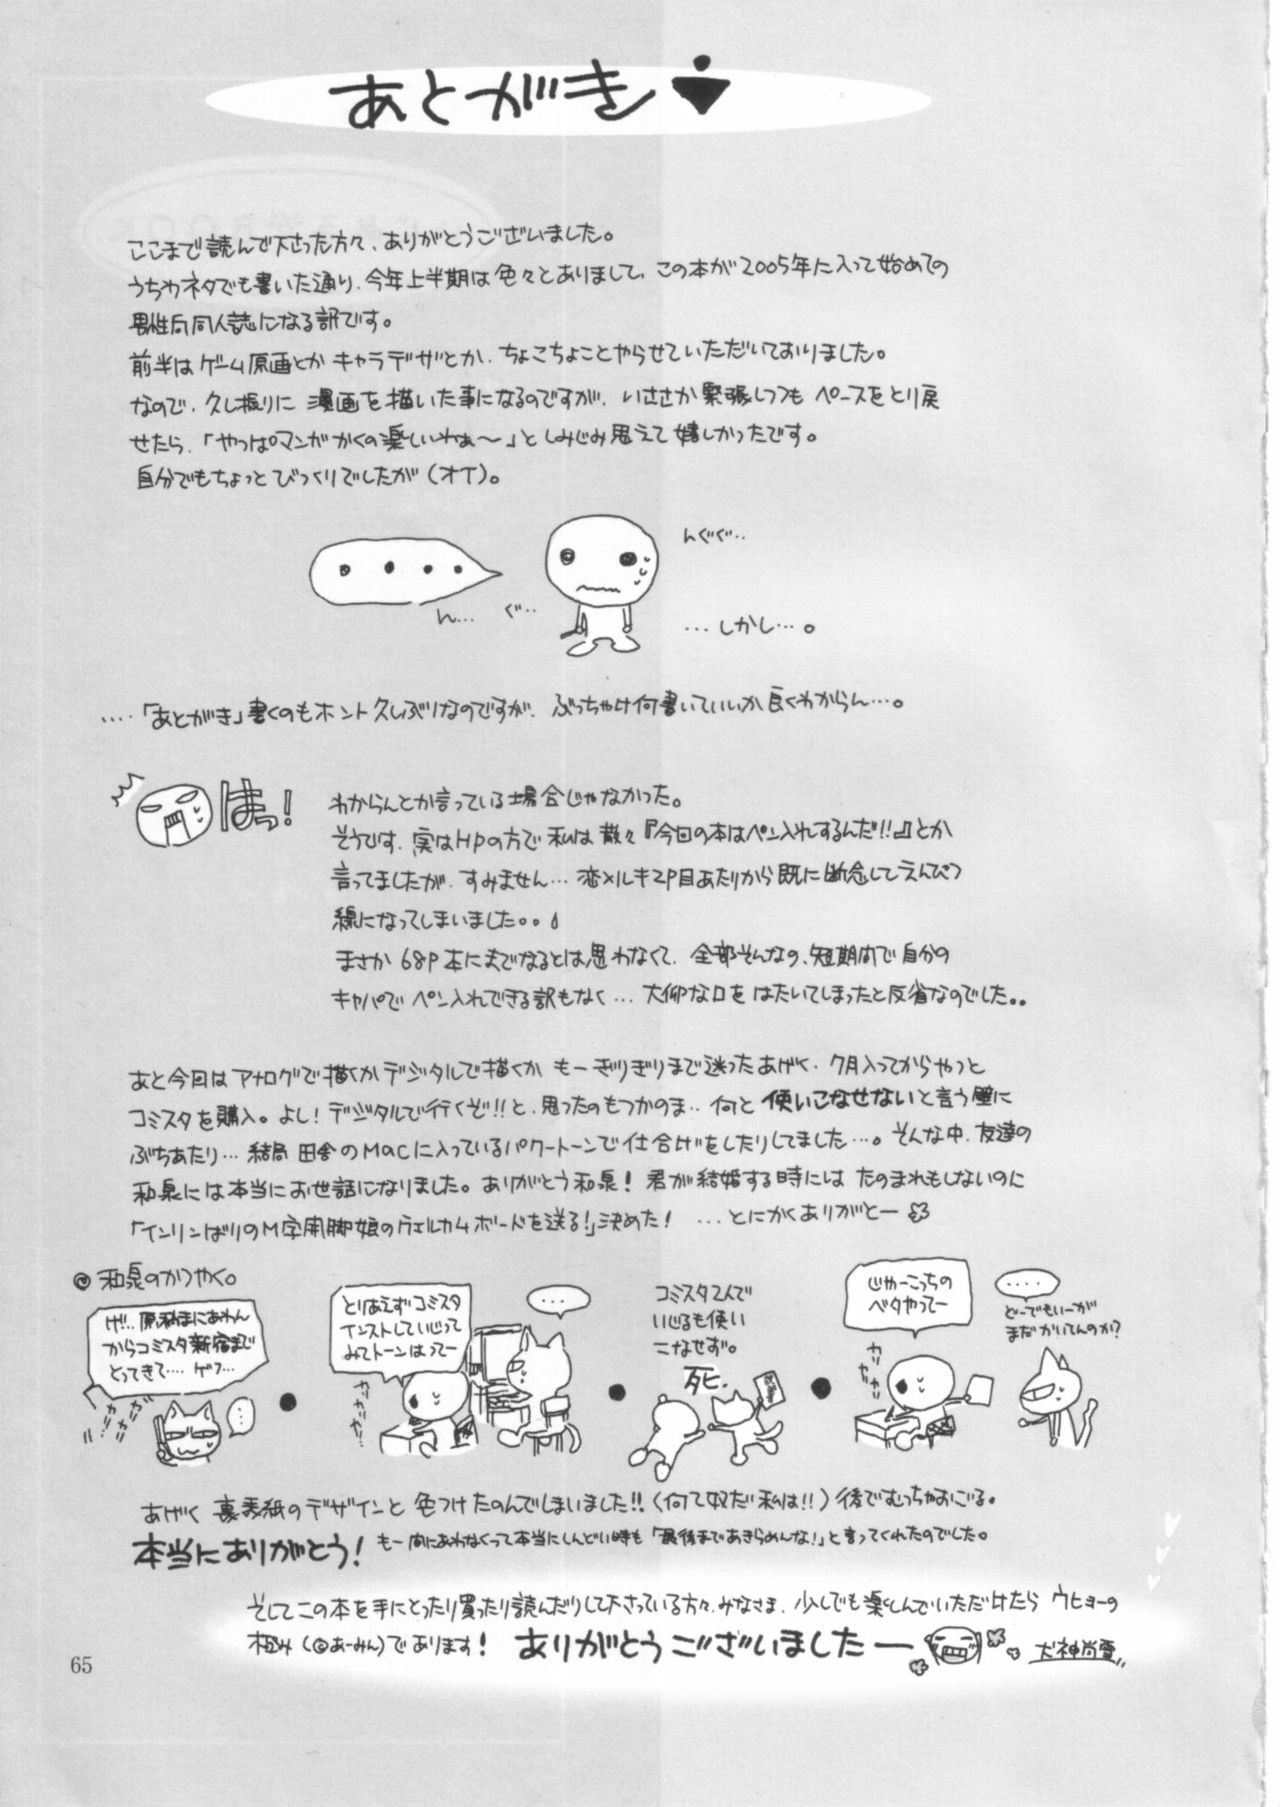 あとがき
ここまで読んで下さった方々、ありがとうございました。
うちわネタでも書いた通り、今年上半期は色々とありまして、この本が2005年に入って始めての
男性向同人誌になる訳です。
前半はゲーム原画とかキャラデザとか、ちょこちょことやらせていただいておりました。
なので、久し振りに漫画を描いた事になるのですが、いささか緊張しつつもペースをとり戻
せたら、「やっぱマンガかくの楽しいわぁ〜」としみじみ思えて嬉しかったです。
自分でもちょっとびっくりでしたが(オイ)。
んぐぐ‥
ん… ぐ‥
…しかし…。
‥‥「あとがき」書くのもホント久しぶりなのですが、ぶっちゃけ何書いていいか良くわからん…。
はっ!
わからんとか言っている場合じゃなかった。
そうです、実はHPの方で私は散々『今回の本はペン入れするんだ!!』とか
言ってましたが、すみません… 恋×ルキ2P目あたりから既に断念してえんぴつ
線になってしまいました。。
まさか68P本にまでなるとは思わなくて、全部そんなの、短期間で自分の
キャパでペン入れできる訳もなく… 大仰な口をはたいてしまったと反省なのでした。。
あと今回はアナログで描くかデジタルで描くかもーぎりぎりまで迷ったあげく、7月入ってからやっと
コミスタを購入。よし!デジタルで行くぞ!!と、思ったのもつかのま‥何と使いこなせないと言う壁に
ぶちあたり… 結局田舎のMacに入っているパワートーンで仕合げをしたりしてました…。そんな中、友達の
和泉には本当にお世話になりました。ありがとう和泉!君が結婚する時にはたのまれもしないのに
「インリンばりのM字開脚娘のウェルカムボードを送る!」決めた! …とにかくありがとー
◎和泉のかつやく。
げ!‥原稿まにあわん
からコミスタ新宿まで
とってきて‥‥ゲフ…
とりあえずコミスタ
インストしていじって
みてトーンはってー
カリカリ
コミスタ2人で
いじるも使い
こなせず。
死.
じゃーこっちの
ベタやってー
カリカリ
どーでもいーが
まだかいてんのか?
あげく裏表紙のデザインと色つけたのんでしまいました!!(何て奴だ私は!!)後でむっちゃおごる。
本当にありがとう! もー間にあわなくって本当にしんどい時も「最後まであきらめんな!」と言ってくれたのでした。
そしてこの本を手にとったり買ったり読んだりして下さっている方々、みなさま、少しでも楽しんでいただけたらウヒョーの
極み(@あーみん)であります! ありがとうございましたー 犬神尚雪
65